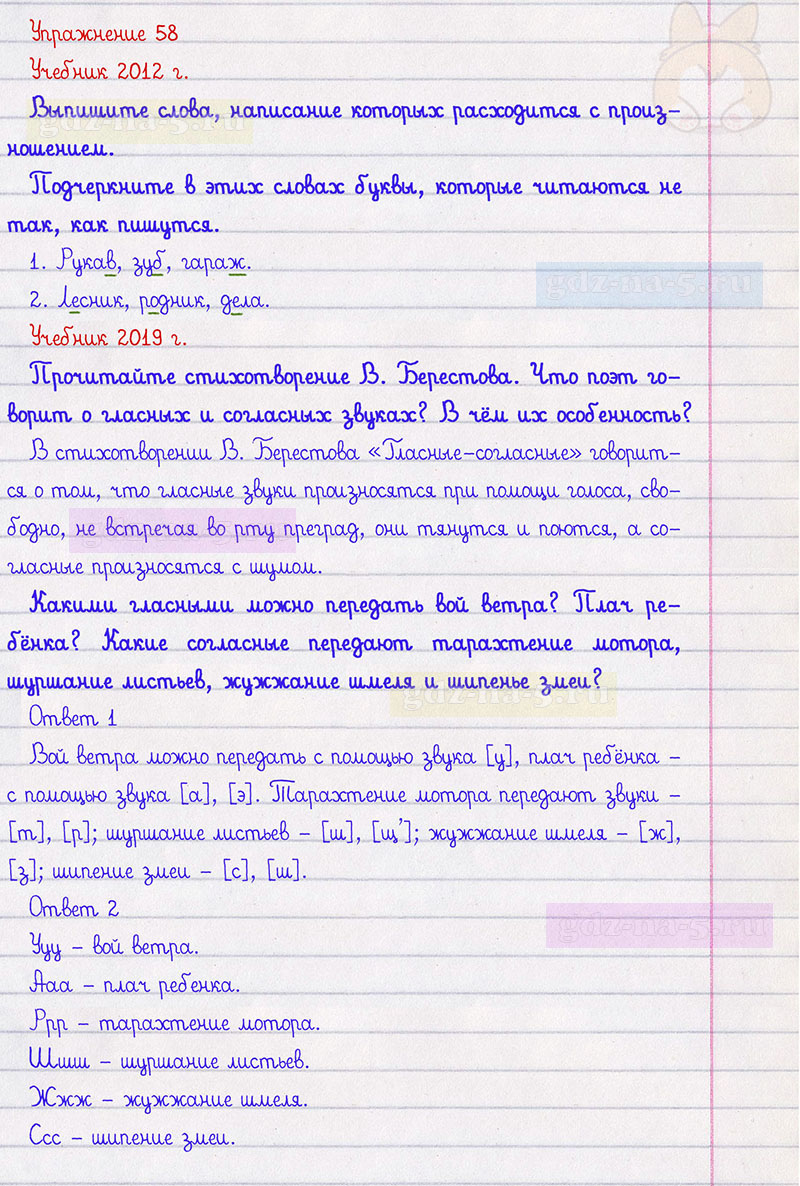 Упражнение 58
Учебник 2012 г.
Выпишите слова, написание которых расходится с произ-
ношением.
Подчеркните в этих словах буквы, которые читаются не
так, как пишутся.
1. Рукав, зуб, гараж.
2. Лесник, родник, дела.
Учебник 2019 г.
Прочитайте стихотворение В. Берестова. Что поэт го-
ворит о гласных и согласных звуках? В чём их особенность?
В стихотворении В. Берестова «Гласные-согласные» говорит-
ся о том, что гласные звуки произносятся при помощи голоса, сво-
бодно, не встречая во рту преград, они тянутся и поются, а со-
гласные произносятся с шумом.
Какими гласными можно передать вой ветра? Плач ре-
бёнка? Какие согласные передают тарахтение мотора,
шуршание листьев, жужжание шмеля и шипенье змеи?
Ответ 1
Вой ветра можно передать с помощью звука [у], плач ребёнка –
с помощью звука [а], [э]. Тарахтение мотора передают звуки –
[т], [р]; шуршание листьев – [ш], [щ’]; жужжание шмеля – [ж],
[з]; шипение змеи – [с], [ш].
Ответ 2
Ууу – вой ветра.
Ааа – плач ребенка.
Ррр – тарахтение мотора.
Шшш – шуршание листьев.
Жжж – жужжание шмеля.
Ссс – шипение змеи.
gdz-na-5.ru
gdz-na-5.ru
gdz-na-5.ru
gdz-na-5.ru
gdz-na-5.ru